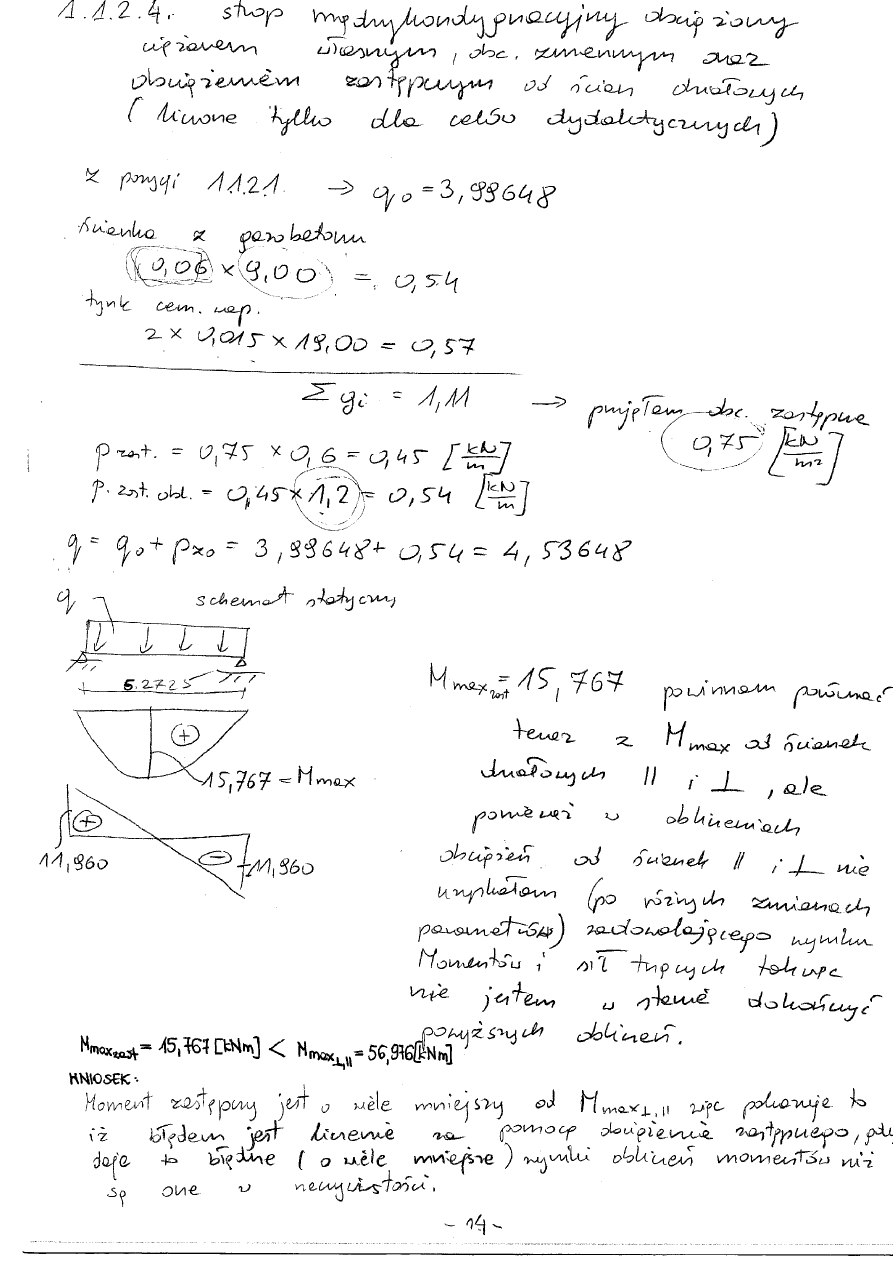 1.1.2.4. strop międzykondygnacyjny obciążony
ciężarem własnym, obc. zmiennym oraz
obciążeniem zastępczym od ścian działowych
(liczone tylko dla celów dydaktycznych)
z pozycji 1.1.2.1. → q₀ = 3,99648
ścianka z gazobetonu
0,06 × 9,00 = 0,54
tynk cem. wap.
2 × 0,015 × 19,00 = 0,57
Σ gi = 1,11 → przyjęłam obc. zastępcze
0,75 [kN/m²]
p zast. = 0,75 × 0,6 = 0,45 [kN/m]
p. zast. obl. = 0,45 × 1,2 = 0,54 [kN/m]
q = q₀ + pzo = 3,99648 + 0,54 = 4,53648
q schemat statyczny
5.2725
+
15,767 = Mmax
+
−
11,960
11,960
Mmax zast = 15,767 powinnam porównać
teraz z Mmax od ścianek
działowych || i ⊥, ale
ponieważ w obliczeniach
obciążeń od ścianek || i ⊥ nie
uzyskałam (po różnych zmianach
parametrów) zadowalającego wyniku
Momentów i sił tnących tokucę
nie jestem w stanie dokończyć
powyższych obliczeń.
Mmax zast = 15,767 [kNm] < Mmax⊥,|| = 56,976 [kNm]
WNIOSEK:
Moment zastępczy jest o wiele mniejszy od Mmax⊥,|| więc pokazuje to
iż błędem jest liczenie za pomocą obciążenia zastępczego, gdy
daje to błędne (o wiele mniejsze) wyniki obliczeń momentów niż
są one w rzeczywistości.
- 14 -